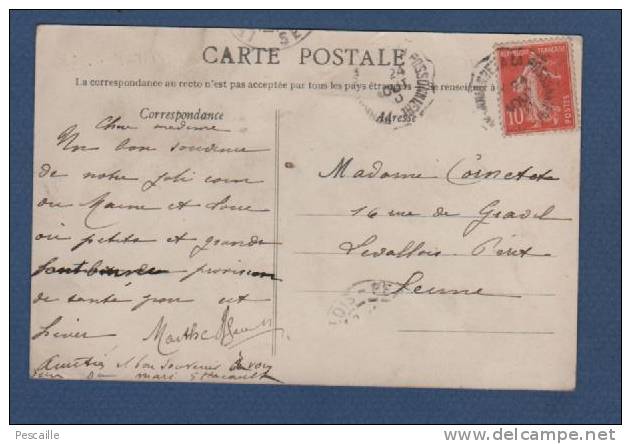 CARTE POSTALE
La correspondance au recto n'est pas acceptée par tous les pays étrangers Se renseigner à
Correspondance
Adresse
RÉPUBLIQUE FRANÇAISE
10
POSTES
Chère madame
Un bon souvenir
de notre joli coin
où Maine et Loire
où petits et grands
font provision
de santé pour cet
hiver Marthe
Amitiés et bon souvenir
mari
Madame
16 rue de Gravel
Levallois-Perret
Seine
POSSONNIÈRE
24
Pescaille
delcampe.net